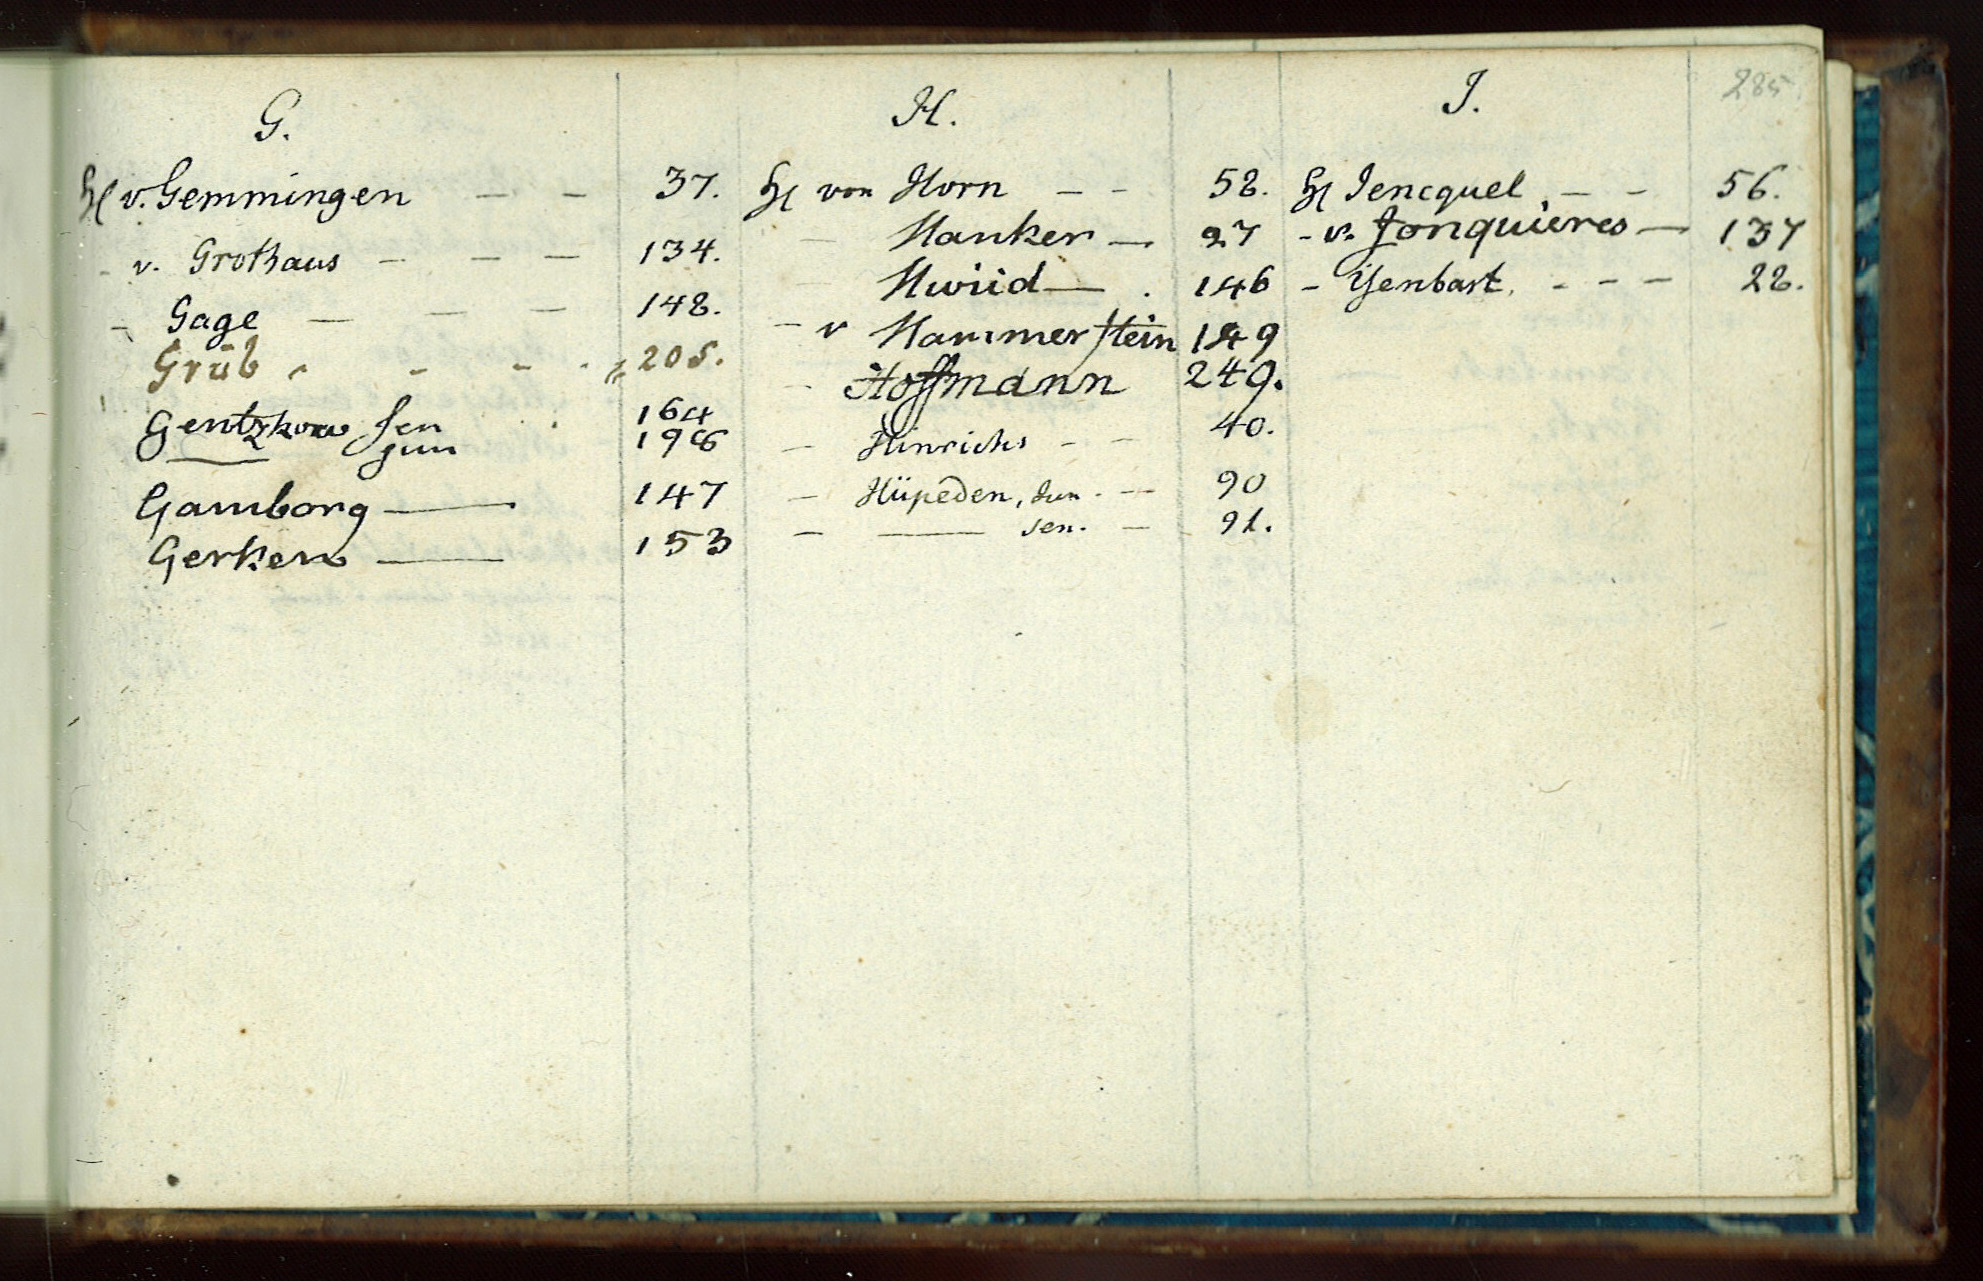 285
G.
v. Gemmingen — — 37.
- v. Grothaus — — — 134.
- Gage — — — 148.
Grüb - - - - 205.
Gentzkow sen 164
— jun 196
Gamborg — 147
Gerken — 153
H.
von Horn — — 58.
— Hanker — 27
— Hwiid — . 146
— v Hammerstein 149
— Hoffmann 249.
— Hinrichs — — 40.
— Hüpeden, Jun. — 90
— — sen. — 91.
J.
Jencquel — — 56.
- v. Jonquieres — 137
- Isenbart. - - - 28.